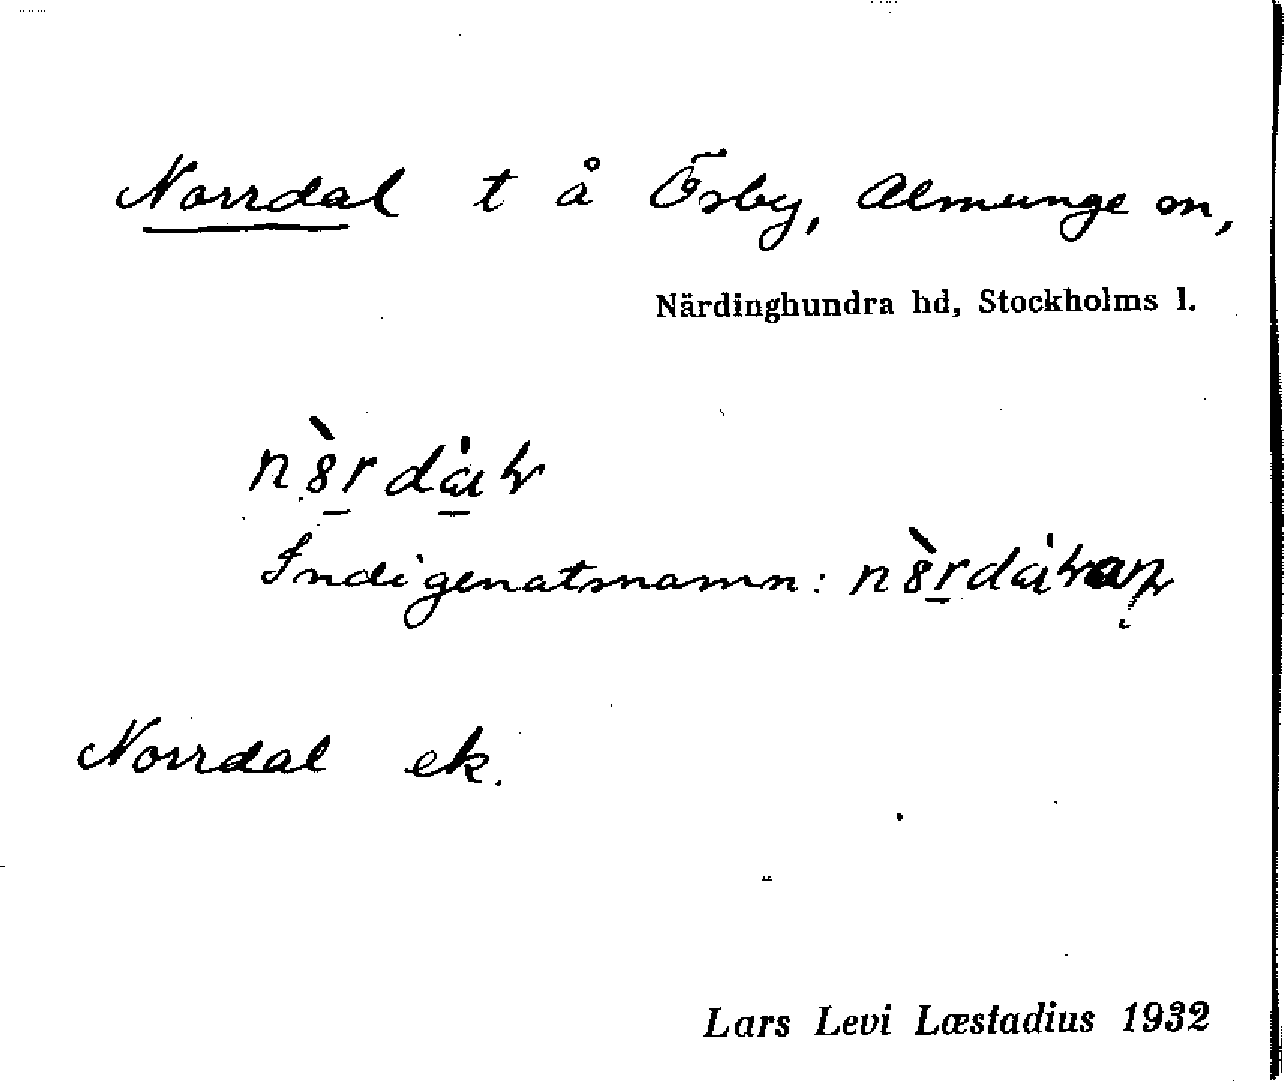 Norrdal t å Ösby, Almunge sn,
Närdinghundra hd, Stockholms l.
Indigenatsnamn:
Norrdal ek.
Lars Levi Læstadius 1932